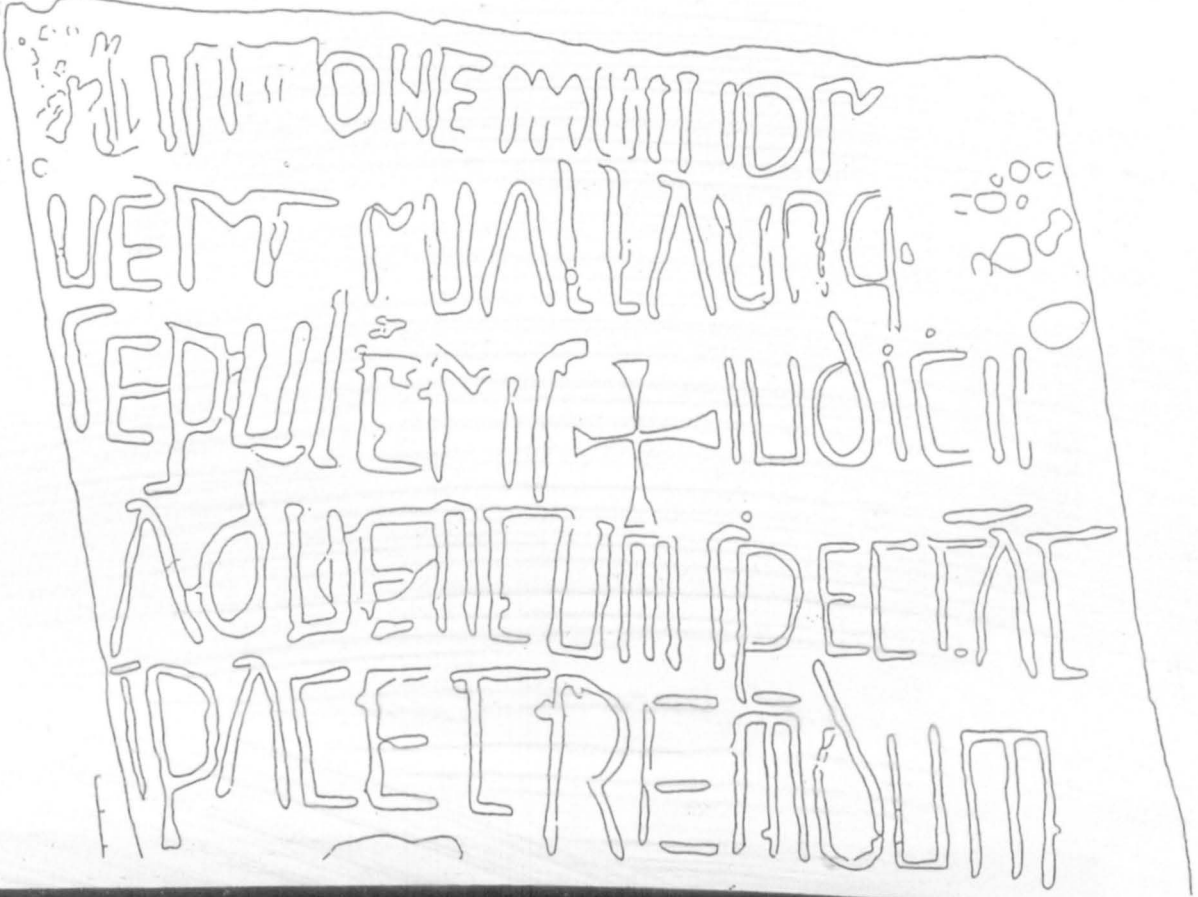 ONE MUTI IOR
UERT RUALLAUNQ
SEPULCRIS + IUdICII
AdUENTUM SPECTĀT
I PACE TREM̄dUM